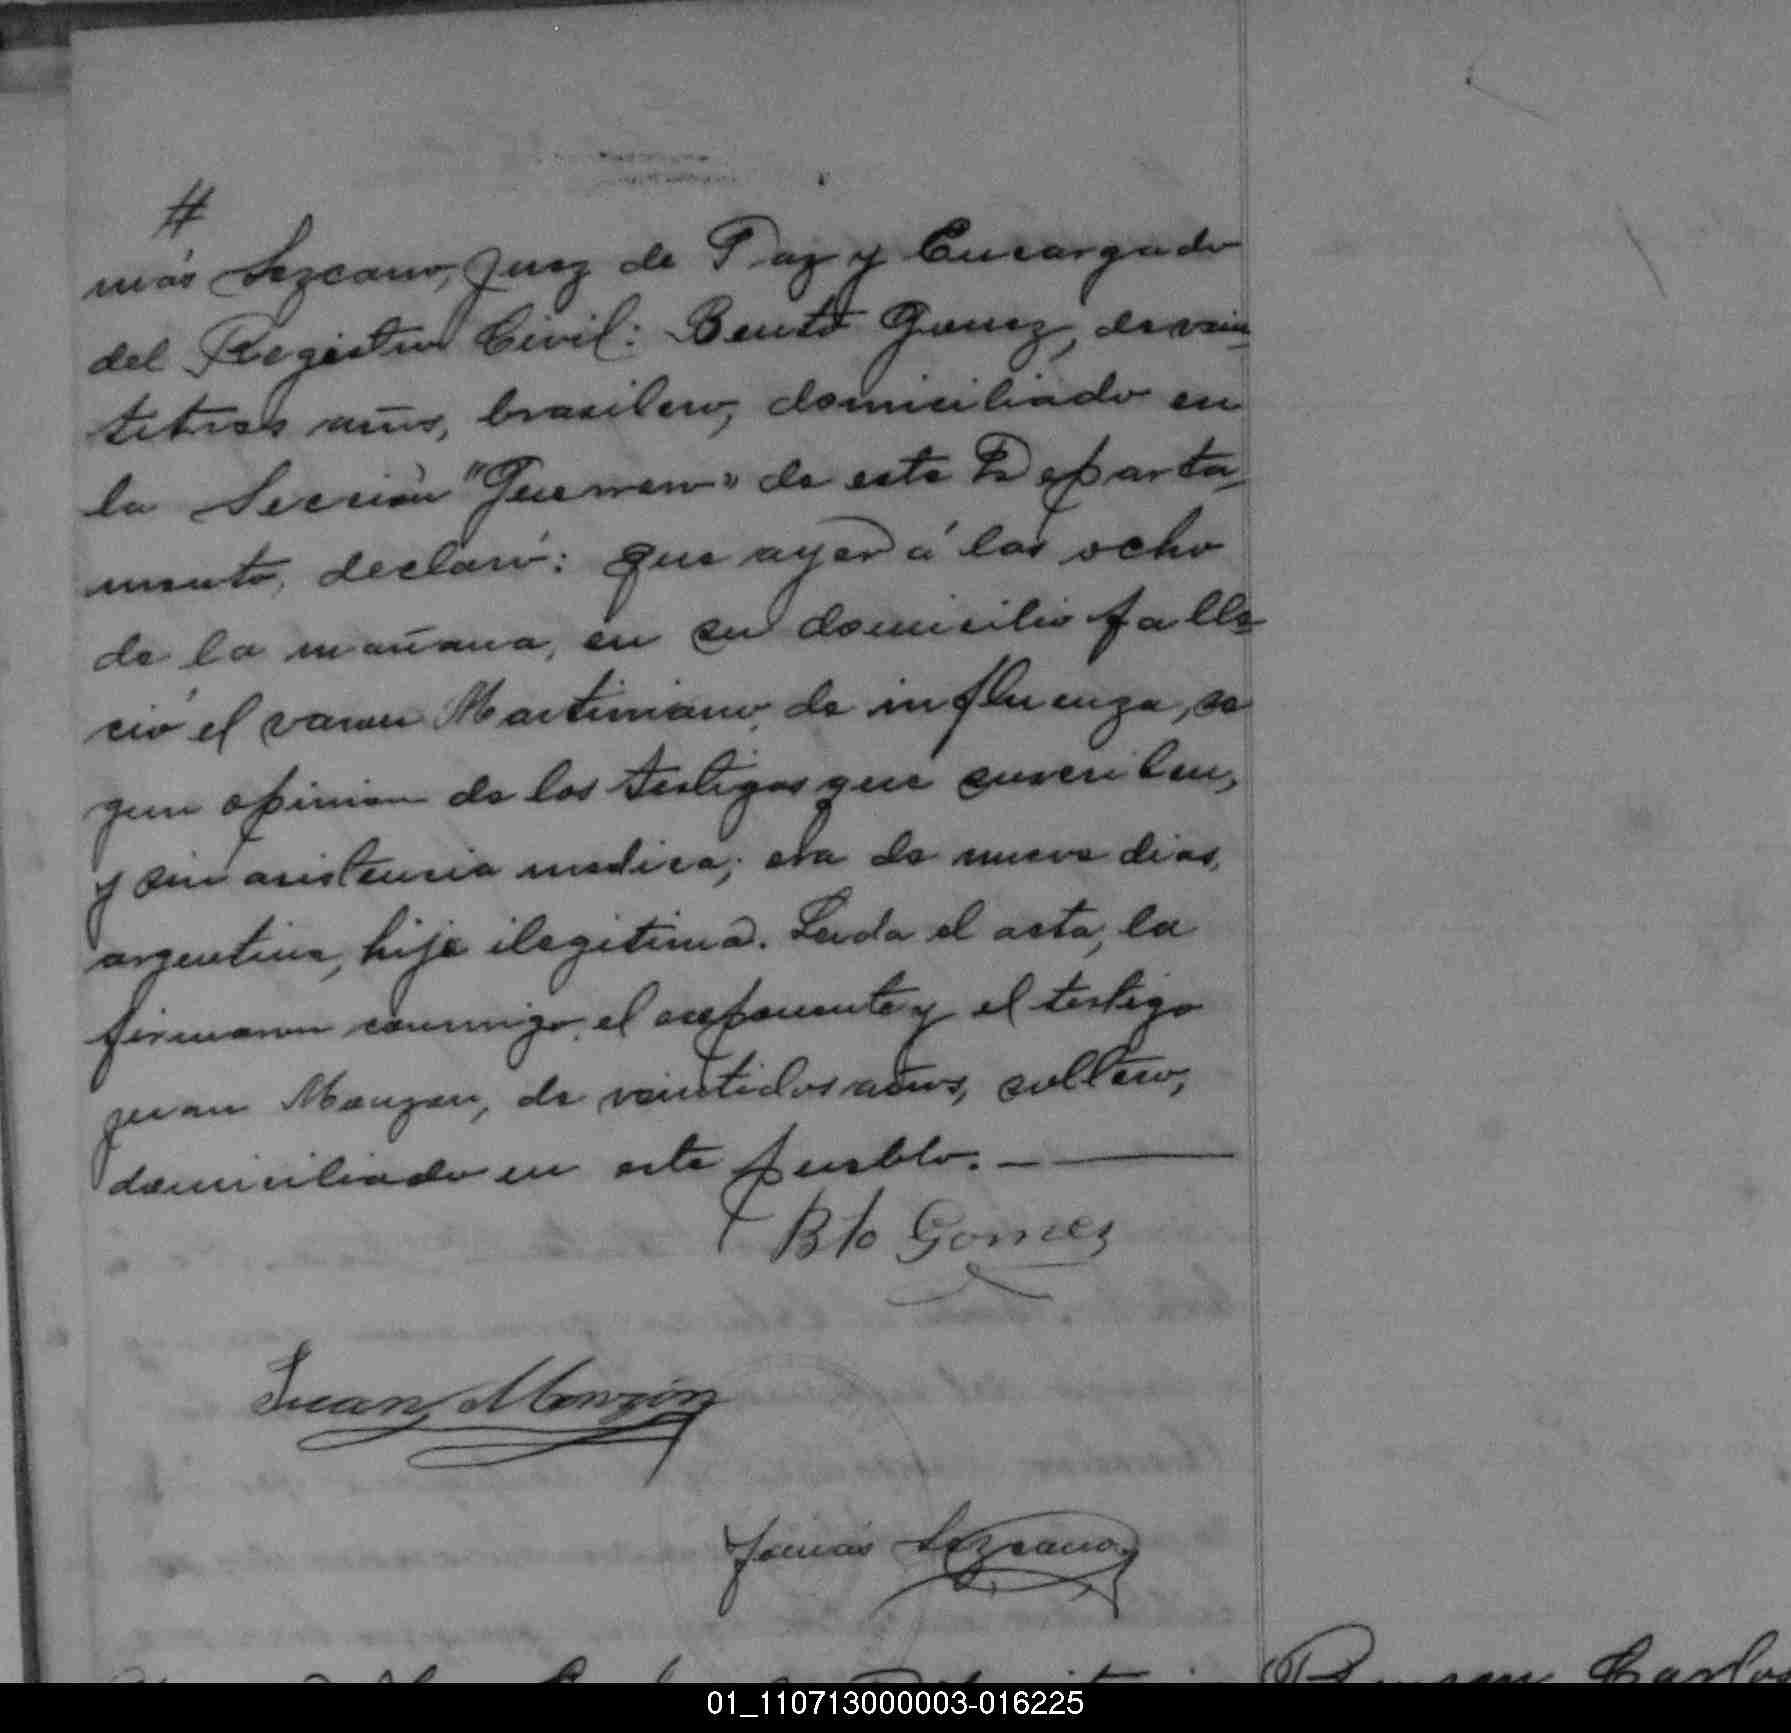 #
más Lezcano, Juez de Paz y Encargado
del Registro Civil: Bento Gomez, de vein-
titres años, brasilero, domiciliado en
la Sección "Guerrero" de este Departa-
mento, declaró: que ayer á las ocho
de la mañana, en su domicilio falle-
ció el varon Martiniano, de influenza, se
gun opinion de los testigos que suscriben,
y sin asistencia medica; era de nueve dias,
argentino, hijo ilegitimo. Leida el acta, la
firmaron conmigo, el exponente y el testigo
Juan Monzon, de veintidos años, soltero,
domiciliado en este pueblo. —
Bto Gomez
Juan Monzón
Tomás Lezcano
Carlos
01_110713000003-016225